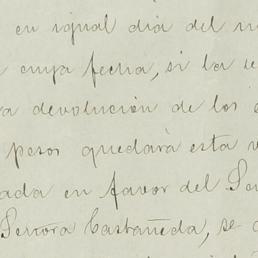 en igual dia del m
cuya fecha, si la se
a devolución de los
pesos quedará esta v
ada en favor del Se
Señora Castañeda, se